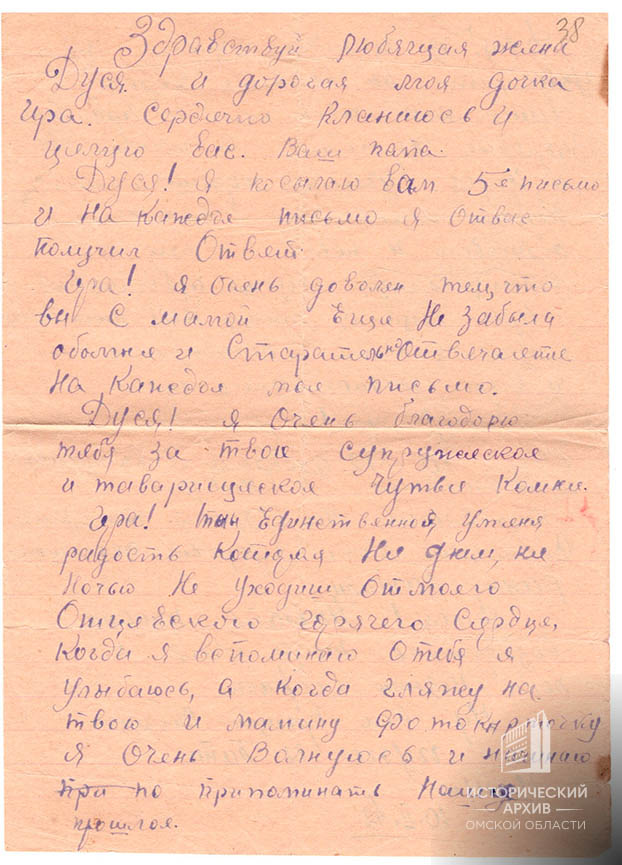 38
Здравствуй любящая жена
Дуся. и дорогая моя дочка
Ира. Сердечно кланиюсь и
целую вас. Ваш папа.
Дуся! Я посылаю вам 5-е письмо
и на каждоя письмо я отвас
получил Ответ.
Ира! я очень доволен тем, что
вы с мамой Еще Не забыли
обомня и Старательно Отвячаяте
На Каждоя мое письмо.
Дуся! я Очень благодорю
тябя за твою супружяское
и таварищяское чутвья Комня.
Ира! ты Единственной, уменя
радость Которая Ни днем, ни
ночью Не уходиш Отмоего
Отцявского горячего Сердця,
Когда я вспоминаю Отебя я
улыбаюсь, а когда гляжу на
твою и мамину Фотокарточку
я Очень Волнуюсь и начинаю
при по припоминать Нашо
прошлоя.
ИСТОРИЧЕСКИЙ
АРХИВ
ОМСКОЙ ОБЛАСТИ